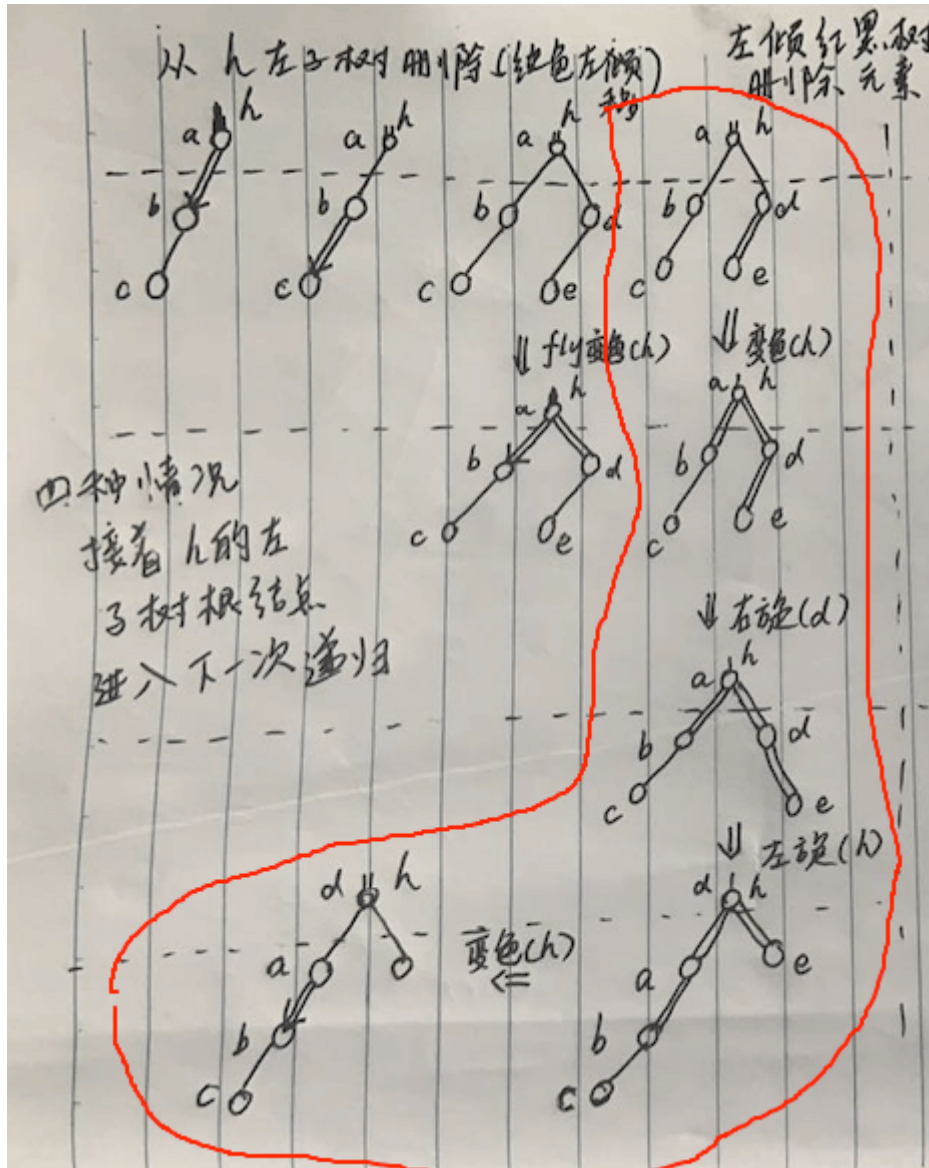 从 h 左子树删除(红色左倾
左倾红黑树
删除元素
a h
b
c
a h
b
c
a h
b d
c e
a h
b d
c e
⇓ fly变色(h)
⇓ 变色(h)
a h
b d
c e
a h
b d
c e
四种情况
接着 h的左
子树根结点
进入下一次递归
⇓ 右旋(d)
a h
b d
c e
⇓ 左旋(h)
d h
a
b
c
变色(h)
⇐
d h
a e
b
c